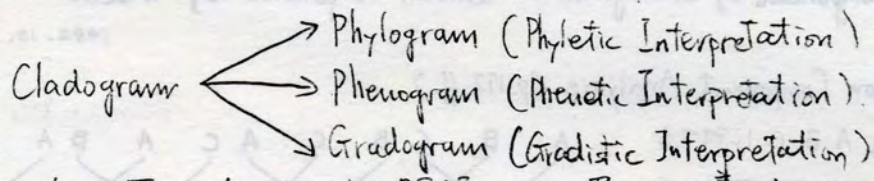 Phylogram (Phyletic Interpretation)
Cladogram
Phenogram (Phenetic Interpretation).
Gradogram (Gradistic Interpretation)